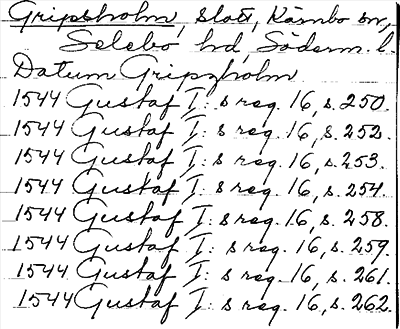 Gripsholm, slott, Kärnbo sn,
Selebo hd, Söderm. l.
Datum Gripzholm
1544 Gustaf I: s reg. 16, s. 250.
1544 Gustaf I: s reg. 16, s. 252.
1544 Gustaf I: s reg. 16, s. 253.
1544 Gustaf I: s reg. 16, s. 254.
1544 Gustaf I: s reg. 16, s. 258.
1544 Gustaf I: s reg. 16, s. 259.
1544 Gustaf I: s reg. 16, s. 261.
1544 Gustaf I: s reg. 16, s. 262.